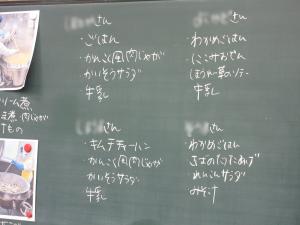 さん
・ごはん
・かんこく風肉じゃが
・かいそうサラダ
・牛乳
さん
・わかめごはん
・にこみおでん
・ほうれん草のソテー
・牛乳
さん
・キムチチャーハン
・かんこく風肉じゃが
・かいそうサラダ
・牛乳
さん
・わかめごはん
・れんこんサラダ
・みそ汁
リーム煮
煮・肉じゃが
けもの